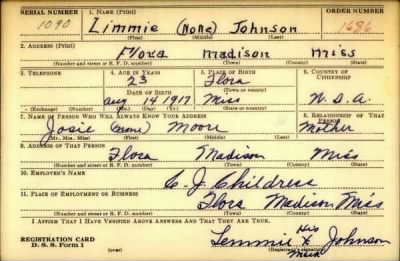 SERIAL NUMBER 1. NAME (Print) ORDER NUMBER
1090 Limmie (None) Johnson 1686
(First) (Middle) (Last)
2. ADDRESS (Print)
Flora Madison Miss
(Number and street or R. F. D. number) (Town) (County) (State)
3. TELEPHONE 4. AGE IN YEARS 5. PLACE OF BIRTH 6. COUNTRY OF CITIZENSHIP
23 Flora
DATE OF BIRTH (Town or county)
Aug 14 1917 Miss U. S. A.
(Exchange) (Number) (Mo.) (Day) (Yr.) (State or country)
7. NAME OF PERSON WHO WILL ALWAYS KNOW YOUR ADDRESS 8. RELATIONSHIP OF THAT PERSON
Josie (none) Moore Mother
(Mr., Mrs., Miss) (First) (Middle) (Last)
9. ADDRESS OF THAT PERSON
Flora Madison Miss
(Number and street or R. F. D. number) (Town) (County) (State)
10. EMPLOYER'S NAME
C. J. Childress
11. PLACE OF EMPLOYMENT OR BUSINESS
Flora Madison Miss
(Number and street or R. F. D. number) (Town) (County) (State)
I AFFIRM THAT I HAVE VERIFIED ABOVE ANSWERS AND THAT THEY ARE TRUE.
REGISTRATION CARD
D. S. S. Form 1
His
Lemmie X Johnson
(Registrant's signature)
Mark